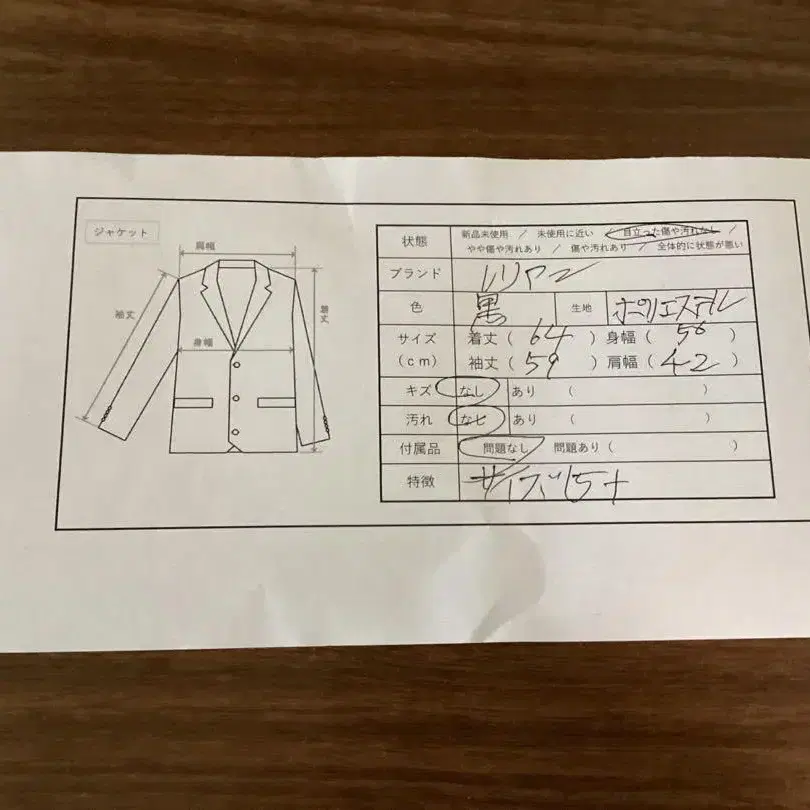 ジャケット
肩幅
袖丈
身幅
着丈
状態 新品未使用 / 未使用に近い / 目立った傷や汚れなし /
やや傷や汚れあり / 傷や汚れあり / 全体的に状態が悪い
ブランド レリアン
色 黒 生地 ポリエステル
サイズ 着丈( 64 ) 身幅( 56 )
(cm) 袖丈( 59 ) 肩幅( 42 )
キズ なし あり ( )
汚れ なし あり ( )
付属品 問題なし 問題あり( )
特徴 サイズ15+